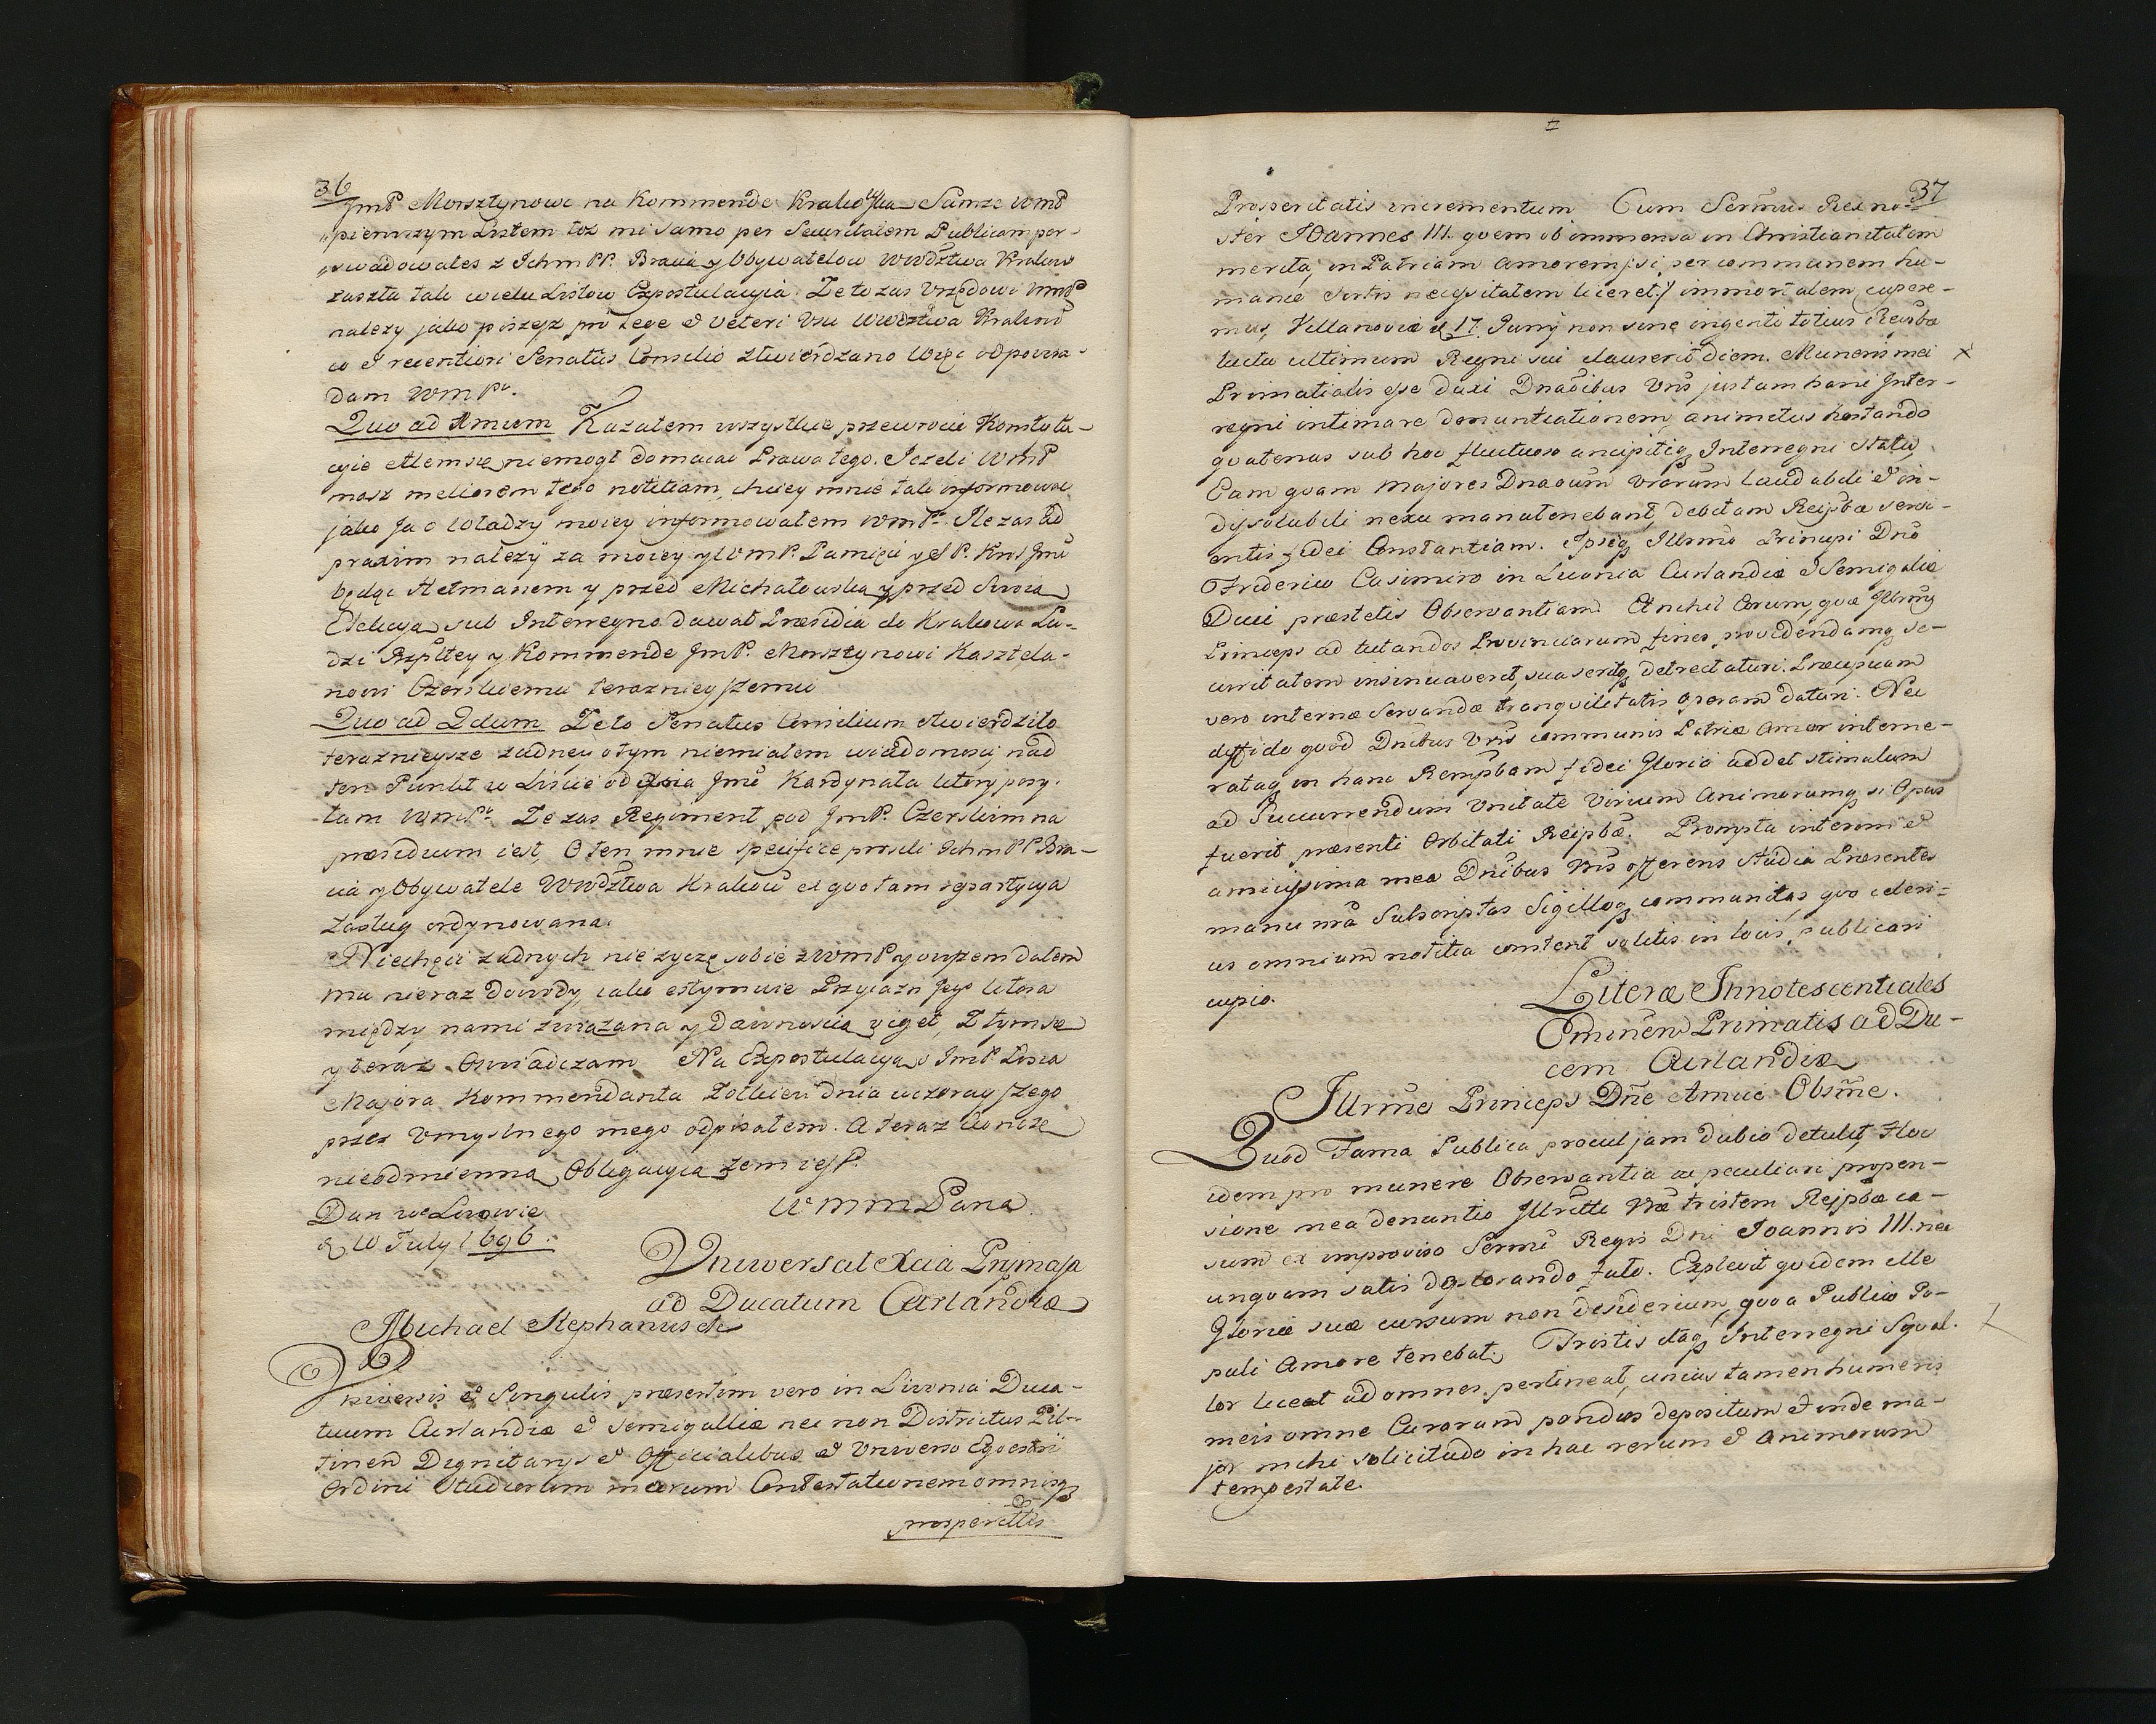 36
JmP Morsztynowi na Kommendę Krakowską Samże WmP
pierwszym Listem toż mi samo per Securitatem Publicam per-
swadowałeś z Ichm PP. Bracią y Obywatelów Wwdztwa Krakow
zaszła tak wielu Listow Expostulacyia. Że to zas Vrzędowi WmP
należy jako piszesz pro Lege et veteri Vsu Wwdztwa Krakow
co et recentiori Senatus Consilio ztwierdzano Więc odpowia-
dam WmPu.
Quo ad 1mum Kazałem wszystkie przewrocic Konstytu-
cyie Alem się niemogł domacac Prawa tego. Jezeli WmP
masz meliorem tego notitiam, chciey mnie tak informowac
jako Ja o Władzy moiey informowałem WmPa. Ile zas ad
praxim należy za moiey y WmP. Pamięci y S P. Krol Jmć
będąc Hetmanem y przed Michałowską y przed Swoią
Elekcyą sub Interregno dawał Præsidia do Krakowa Lu-
dzi Rzpltey y Kommendę JmP. Morsztynowi Kasztela-
nowi Czerskiemu teraznieyszemu
Quo ad 2dam Że to Senatus Consilium stwierdziło
teraznieysze żadney o tym niemiałem wiadomosci nad
ten Punkt w Liscie od Xcia Jmć Kardynała ktory posy-
łam WmPu. Że zas Regiment pod JmP. Czerskim na
præsidium iest, O ten mnie specifice prosili Ichm PP Bra-
cia y Obywatele Wwdztwa Krakow et quotam repartycya
zasług ordynowana.
Niechęci zadnych nie zyczę sobie z WmP y owszem dałem
mu nieraz dowody, iako estymuie Przyiazn Jego ktora
między nami związana y dawnoscią viget, Z tym się
y teraz Oswiadczam Na Expostulacyą JmP. Lisia
Majora Kommendanta Zołkiew dnia wczorayszego
przez Vmyslnego mego odpisałem. A teraz kończę
nieodmienną Obligacyią żem iest.
WmmPana
Dan we Lwowie
d 10 July 1696.
Vniwersał Xcia Prymasa
ad Ducatum Curlandiæ
Michael Stephanus etc
Vniversis et Singulis præsertim vero in Livonia Duca-
tuum Curlandiæ et Semigalliæ nec non Districtus Pil-
tinen Dignitarys et Officialibus et Vniverso Equestri
Ordini Studiorum meorum Contestationem omnisq
prosperittis
37
Prosperitatis incrementum Cum Sermus Rex no-
ster Joannes III. quem ob immensa in Christianitatem
merita, in Patriam Amorem, /:si per communem hu-
manæ sortis necessitatem liceret:/ immortalem cupere-
mus, Villanoviæ d 17. Junÿ non sine ingenti totius Reipbæ
luctu ultimum Regni sui clauserit diem. Muneris mei
Primatialis esse duxi Dnaōibus Vris justam hanc Inter-
regni intimare denuntiationem, animitus hortando
quatenus sub hoc fluctuoso ancipitiq Interregni Statu,
Eam quam Majores Dnaoum Vrarum laudabili et in-
dissolubili nexu manutenebant, debitam Reipbæ servi-
entis fidei Constantiam. Ipsiq Illrmo Principi Dno
Friderico Casimiro in Livonia Curlandiæ et Semigaliæ
Duci præstetis Observantiam Et nihil Eorum, quæ Illrmus
Princeps ad tutandos Provinciarum fines, providendamq se-
curitatem insinuaverit, suaseritq detrectaturi. Præcipuam
vero internæ servandæ tranquilitatis operam daturi. Nec
diffido quod Dnibus Vris communis Patriæ Amor inteme-
rataq in hanc Rempbam fidei Gloria addet stimulum
ad Succurrendum Vnitate Virium Animorumq si Opus
fuerit præsenti Orbitati Reipbæ. Prompta interim et
amicissima mea Dnibus Vris offerens Studia Præsentes
manu mâ Subscriptas Sigilloq communitas, quo celeri-
us omnium notitia constent solitis in locis publicari
cupio.
Literæ Innotescentiales
Eminen Primatis ad Du-
cem Curlandiæ
Illrme Princeps Dne Amice Obsme.
Quod Fama Publica procul jam dubio detulit, Hoc
idem pro munere Observantia ac peculiari propen-
sione mea denuntio Illritti Vræ tristem Reipbæ ca-
sum ex improviso Sermi Regis Dni Joannis III. nec
unquam satis deplorando fato. Explevit quidem ille
Gloriæ suæ cursum non desiderium, quo a Publico Po-
puli Amore tenebat. Tristis itaq Interregni Squal-
lor liceat ad omnes pertineat, unius tamen humeris
meis omne Curarum pondus depositum et inde ma-
jor mihi solicitudo in hac rerum et Animorum
tempestate.